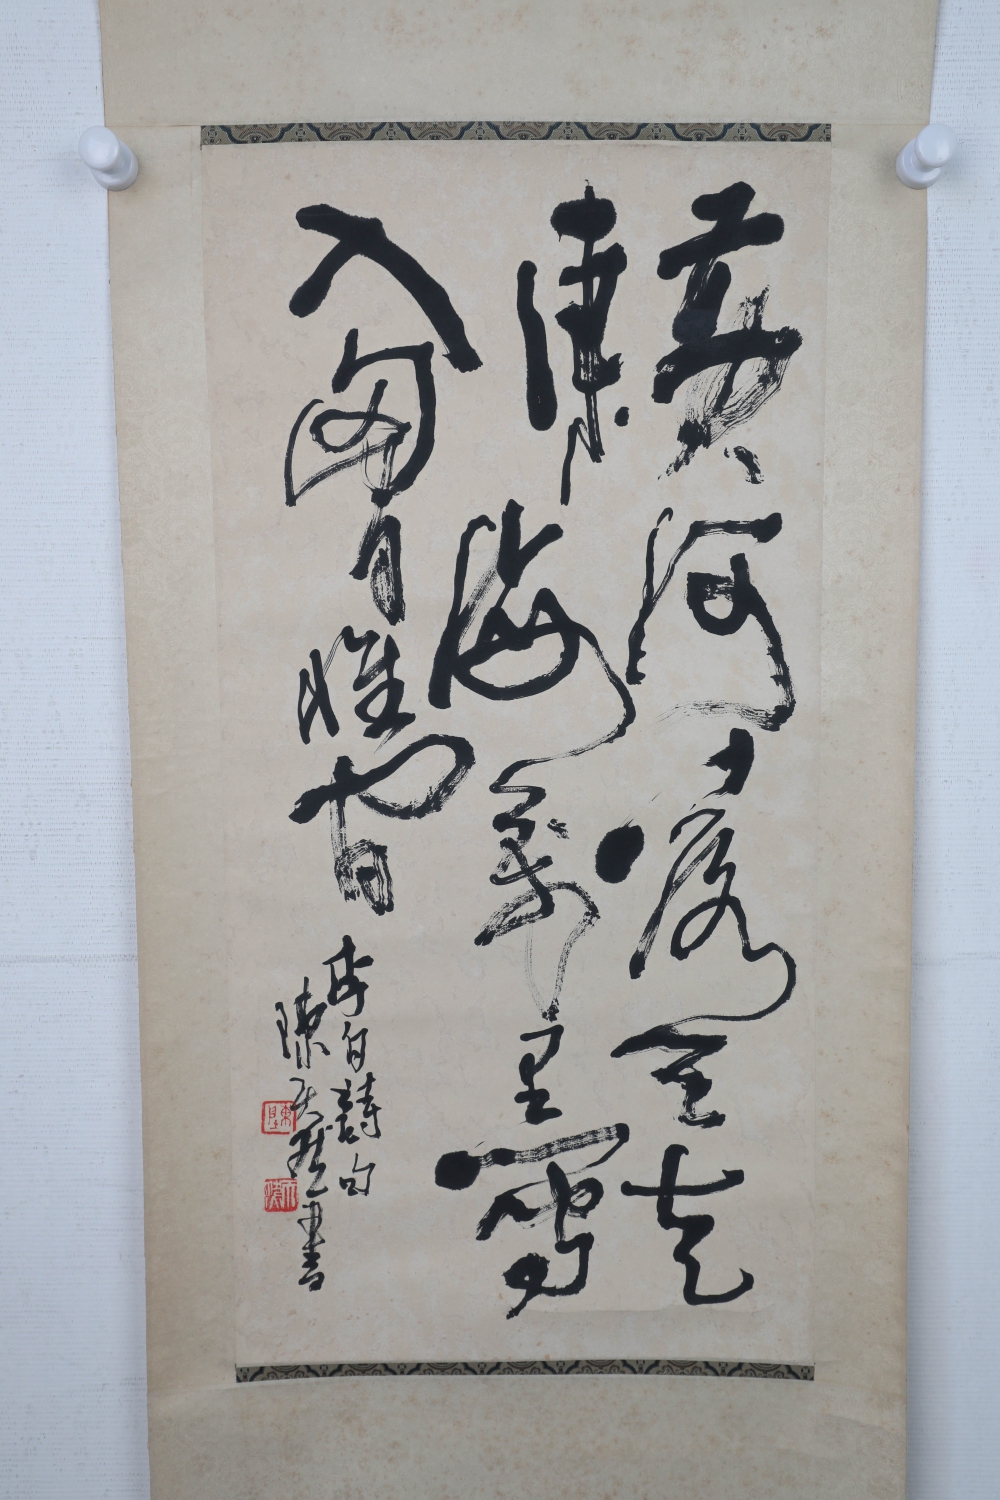 黃河落天走
東海萬里寫
入胸懷間
李白詩句
陳天然書
陳印
天然